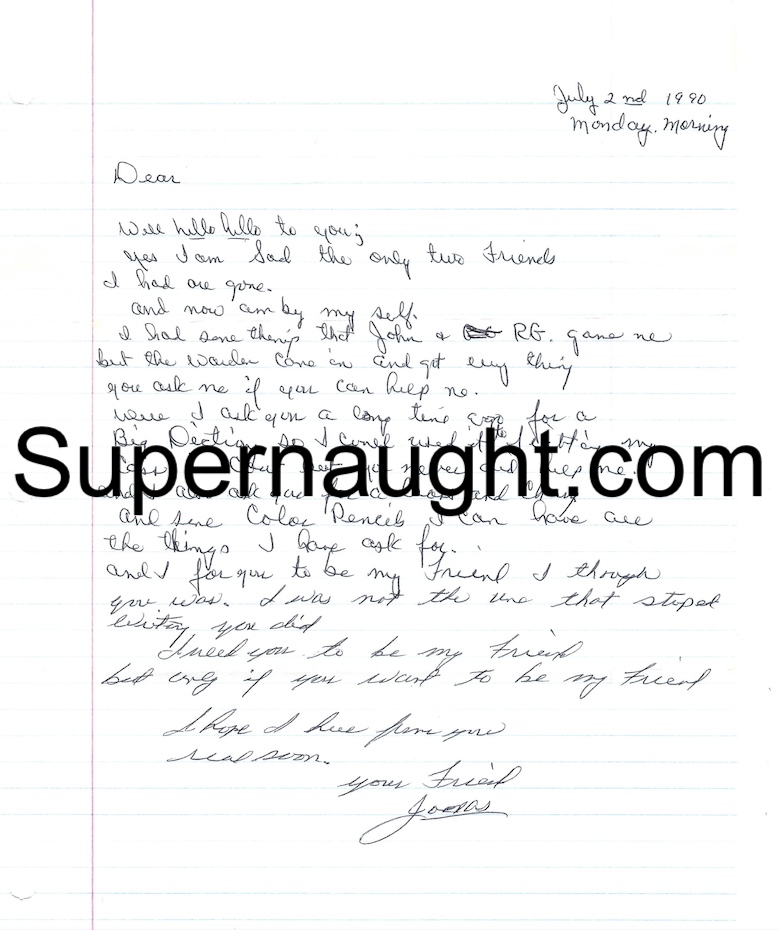 July 2 nd 1990
Monday. Morning
Dear
Well hello hello to you;
yes I am Sad the only two Friends
I had are gone.
and now am by my self.
I had some thenis that John & RG. gave me
but the warden Come in and got evry thing
you ask me if you can help me.
were I ask you a long time ago for a
Big Dection so I coued used it
Supernaught.com
never did help me.
and I also ask you for a
and some Color Pencils I can have all
the things I have ask for.
and I for you to be my Friend I though
you was. I was not the one that stoped
writing you did
I need you to be my Friend
but only if you want to be my Friend
I hope I hear from you
real soon.
your Friend